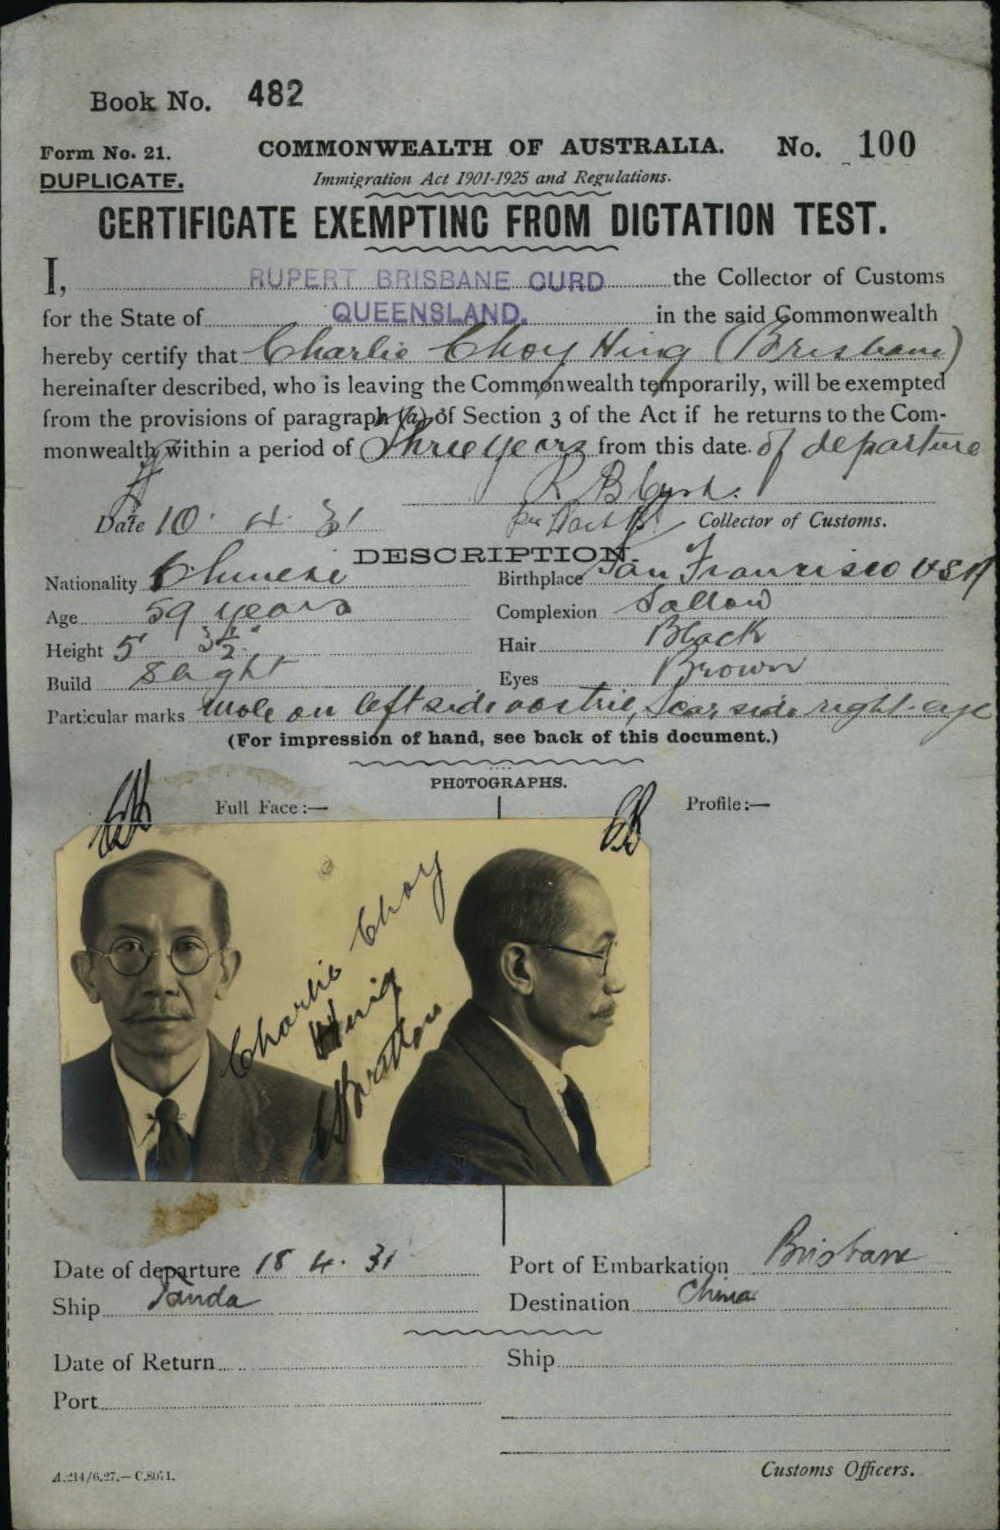 Book No. 482
Form No. 21. COMMONWEALTH OF AUSTRALIA. No. 100
DUPLICATE. Immigration Act 1901-1925 and Regulations.
CERTIFICATE EXEMPTING FROM DICTATION TEST.
I, RUPERT BRISBANE CURD the Collector of Customs
for the State of QUEENSLAND. in the said Commonwealth
hereby certify that Charlie Choy Hing (Brisbane)
hereinafter described, who is leaving the Commonwealth temporarily, will be exempted
from the provisions of paragraph (a) of Section 3 of the Act if he returns to the Com-
monwealth within a period of Three years from this date. of departure
R B Curd.
Date 10. 4. 31 Collector of Customs.
DESCRIPTION.
Nationality Chinese Birthplace San Francisco USA
Age 59 years Complexion Sallow
Height 5' 3½" Hair Black
Build Slight Eyes Brown
Particular marks Mole on left side nostril, Scar side right eye
(For impression of hand, see back of this document.)
PHOTOGRAPHS.
Full Face:— Profile:—
Charlie Choy
Hing
Date of departure 18 4. 31 Port of Embarkation Brisbane
Ship Tanda Destination China
Date of Return Ship
Port
A.214/6.27.—C.8051. Customs Officers.